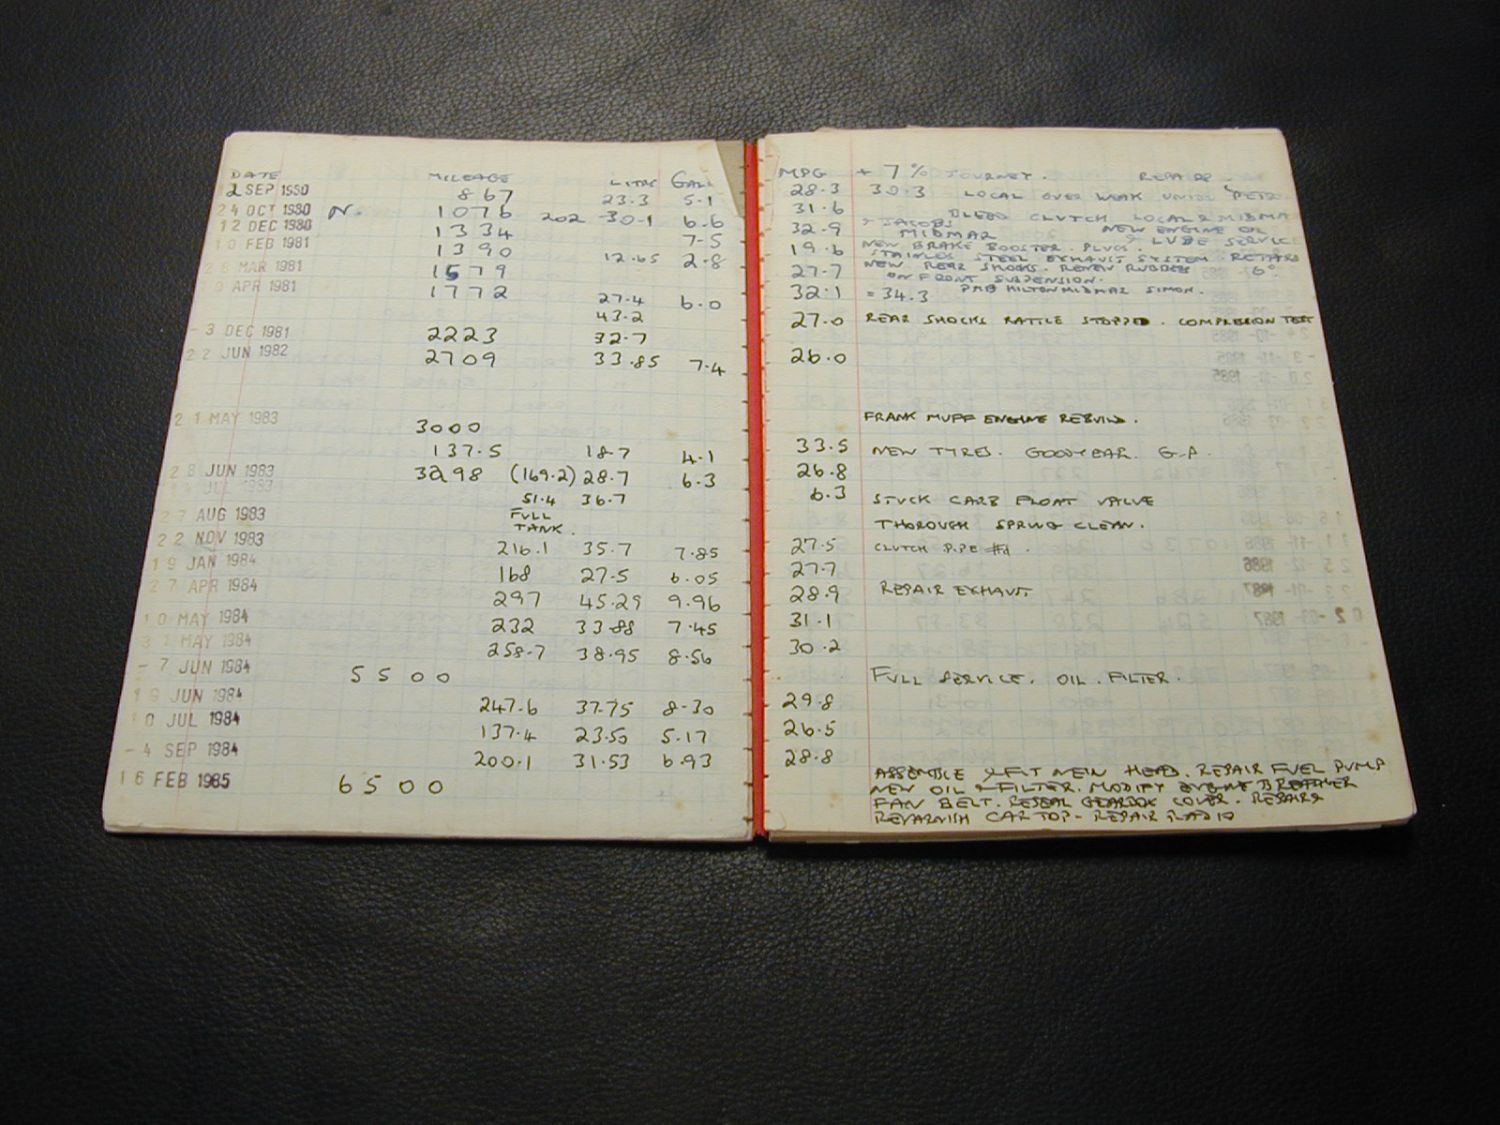 DATE MILEAGE LITRS GALL MPG + 7% JOURNEY. REPAIRS.
2 SEP 1980 867 23.3 5.1 28.3 30.3 LOCAL OVER WEAK UNION PETR
24 OCT 1980 N. 1076 202 30.1 6.6 31.6 BLEED CLUTCH LOCAL & MIDMA
12 DEC 1980 1334 7-5 32.9 & JACOBS NEW ENGINE OIL
MIDMAR & LUBE SERVICE
10 FEB 1981 1390 12.65 2.8 19.6 NEW BRAKE BOOSTER. PLUGS.
STAINLESS STEEL EXHAUST SYSTEM. RETARD
28 MAR 1981 1579 27.7 NEW REAR SHOCKS. RENEW RUBBERS 6°
ON FRONT SUSPENSION.
APR 1981 1772 27.4 6.0 32.1 = 34.3 PMB HILTON MIDMAR SIMON.
43.2
- 3 DEC 1981 2223 32.7 27.0 REAR SHOCKS RATTLE STOPPED. COMPRESSION TEST
22 JUN 1982 2709 33.85 7.4 26.0
21 MAY 1983 3000 FRANK MUFF ENGINE REBUILD.
137.5 18.7 4.1 33.5 NEW TYRES. GOODYEAR. G.P.
28 JUN 1983 3298 (169.2) 28.7 6.3 26.8
JUL 1983 51.4 36.7 6.3 STUCK CARB FLOAT VALVE
27 AUG 1983 FULL TANK. THOROUGH SPRING CLEAN.
22 NOV 1983 216.1 35.7 7.85 27.5 CLUTCH PIPE
19 JAN 1984 168 27.5 6.05 27.7
27 APR 1984 297 45.29 9.96 28.9 REPAIR EXHAUST
10 MAY 1984 232 33.88 7.45 31.1
31 MAY 1984 258.7 38.95 8.56 30.2
- 7 JUN 1984 5500 FULL SERVICE. OIL. FILTER.
19 JUN 1984 247.6 37.75 8.30 29.8
10 JUL 1984 137.4 23.50 5.17 26.5
- 4 SEP 1984 200.1 31.53 6.93 28.8
16 FEB 1985 6500 ASSEMBLE & FIT NEW HEAD. REPAIR FUEL PUMP
NEW OIL & FILTER. MODIFY ENGINE BREATHER
FAN BELT. RESEAL GEARBOX COVER. REPAIR &
REVARNISH CAR TOP - REPAIR RADIO